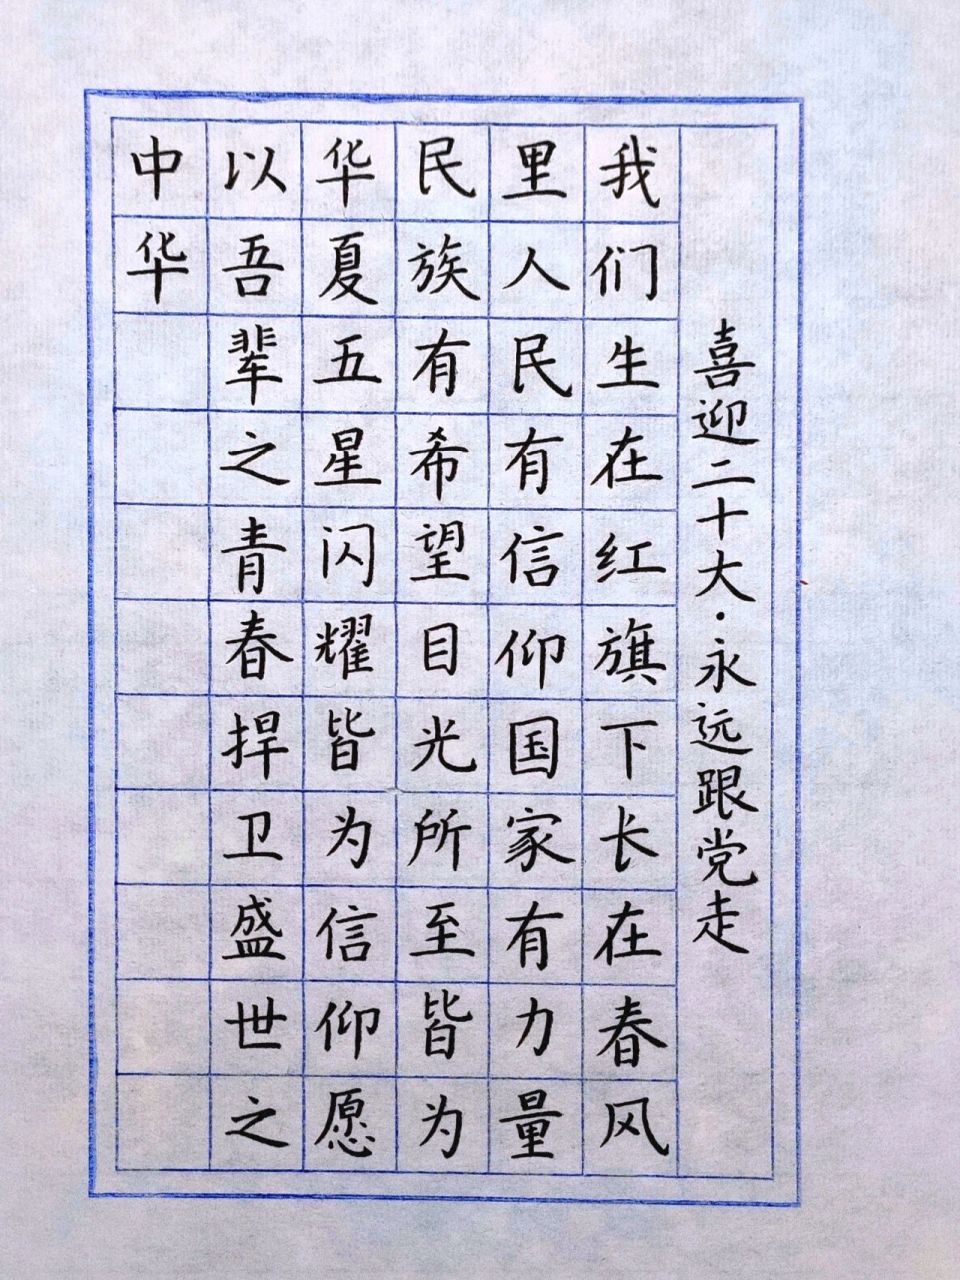 喜迎二十大·永远跟党走
我们生在红旗下长在春风
里人民有信仰国家有力量
民族有希望目光所至皆为
华夏五星闪耀皆为信仰愿
以吾辈之青春捍卫盛世之
中华